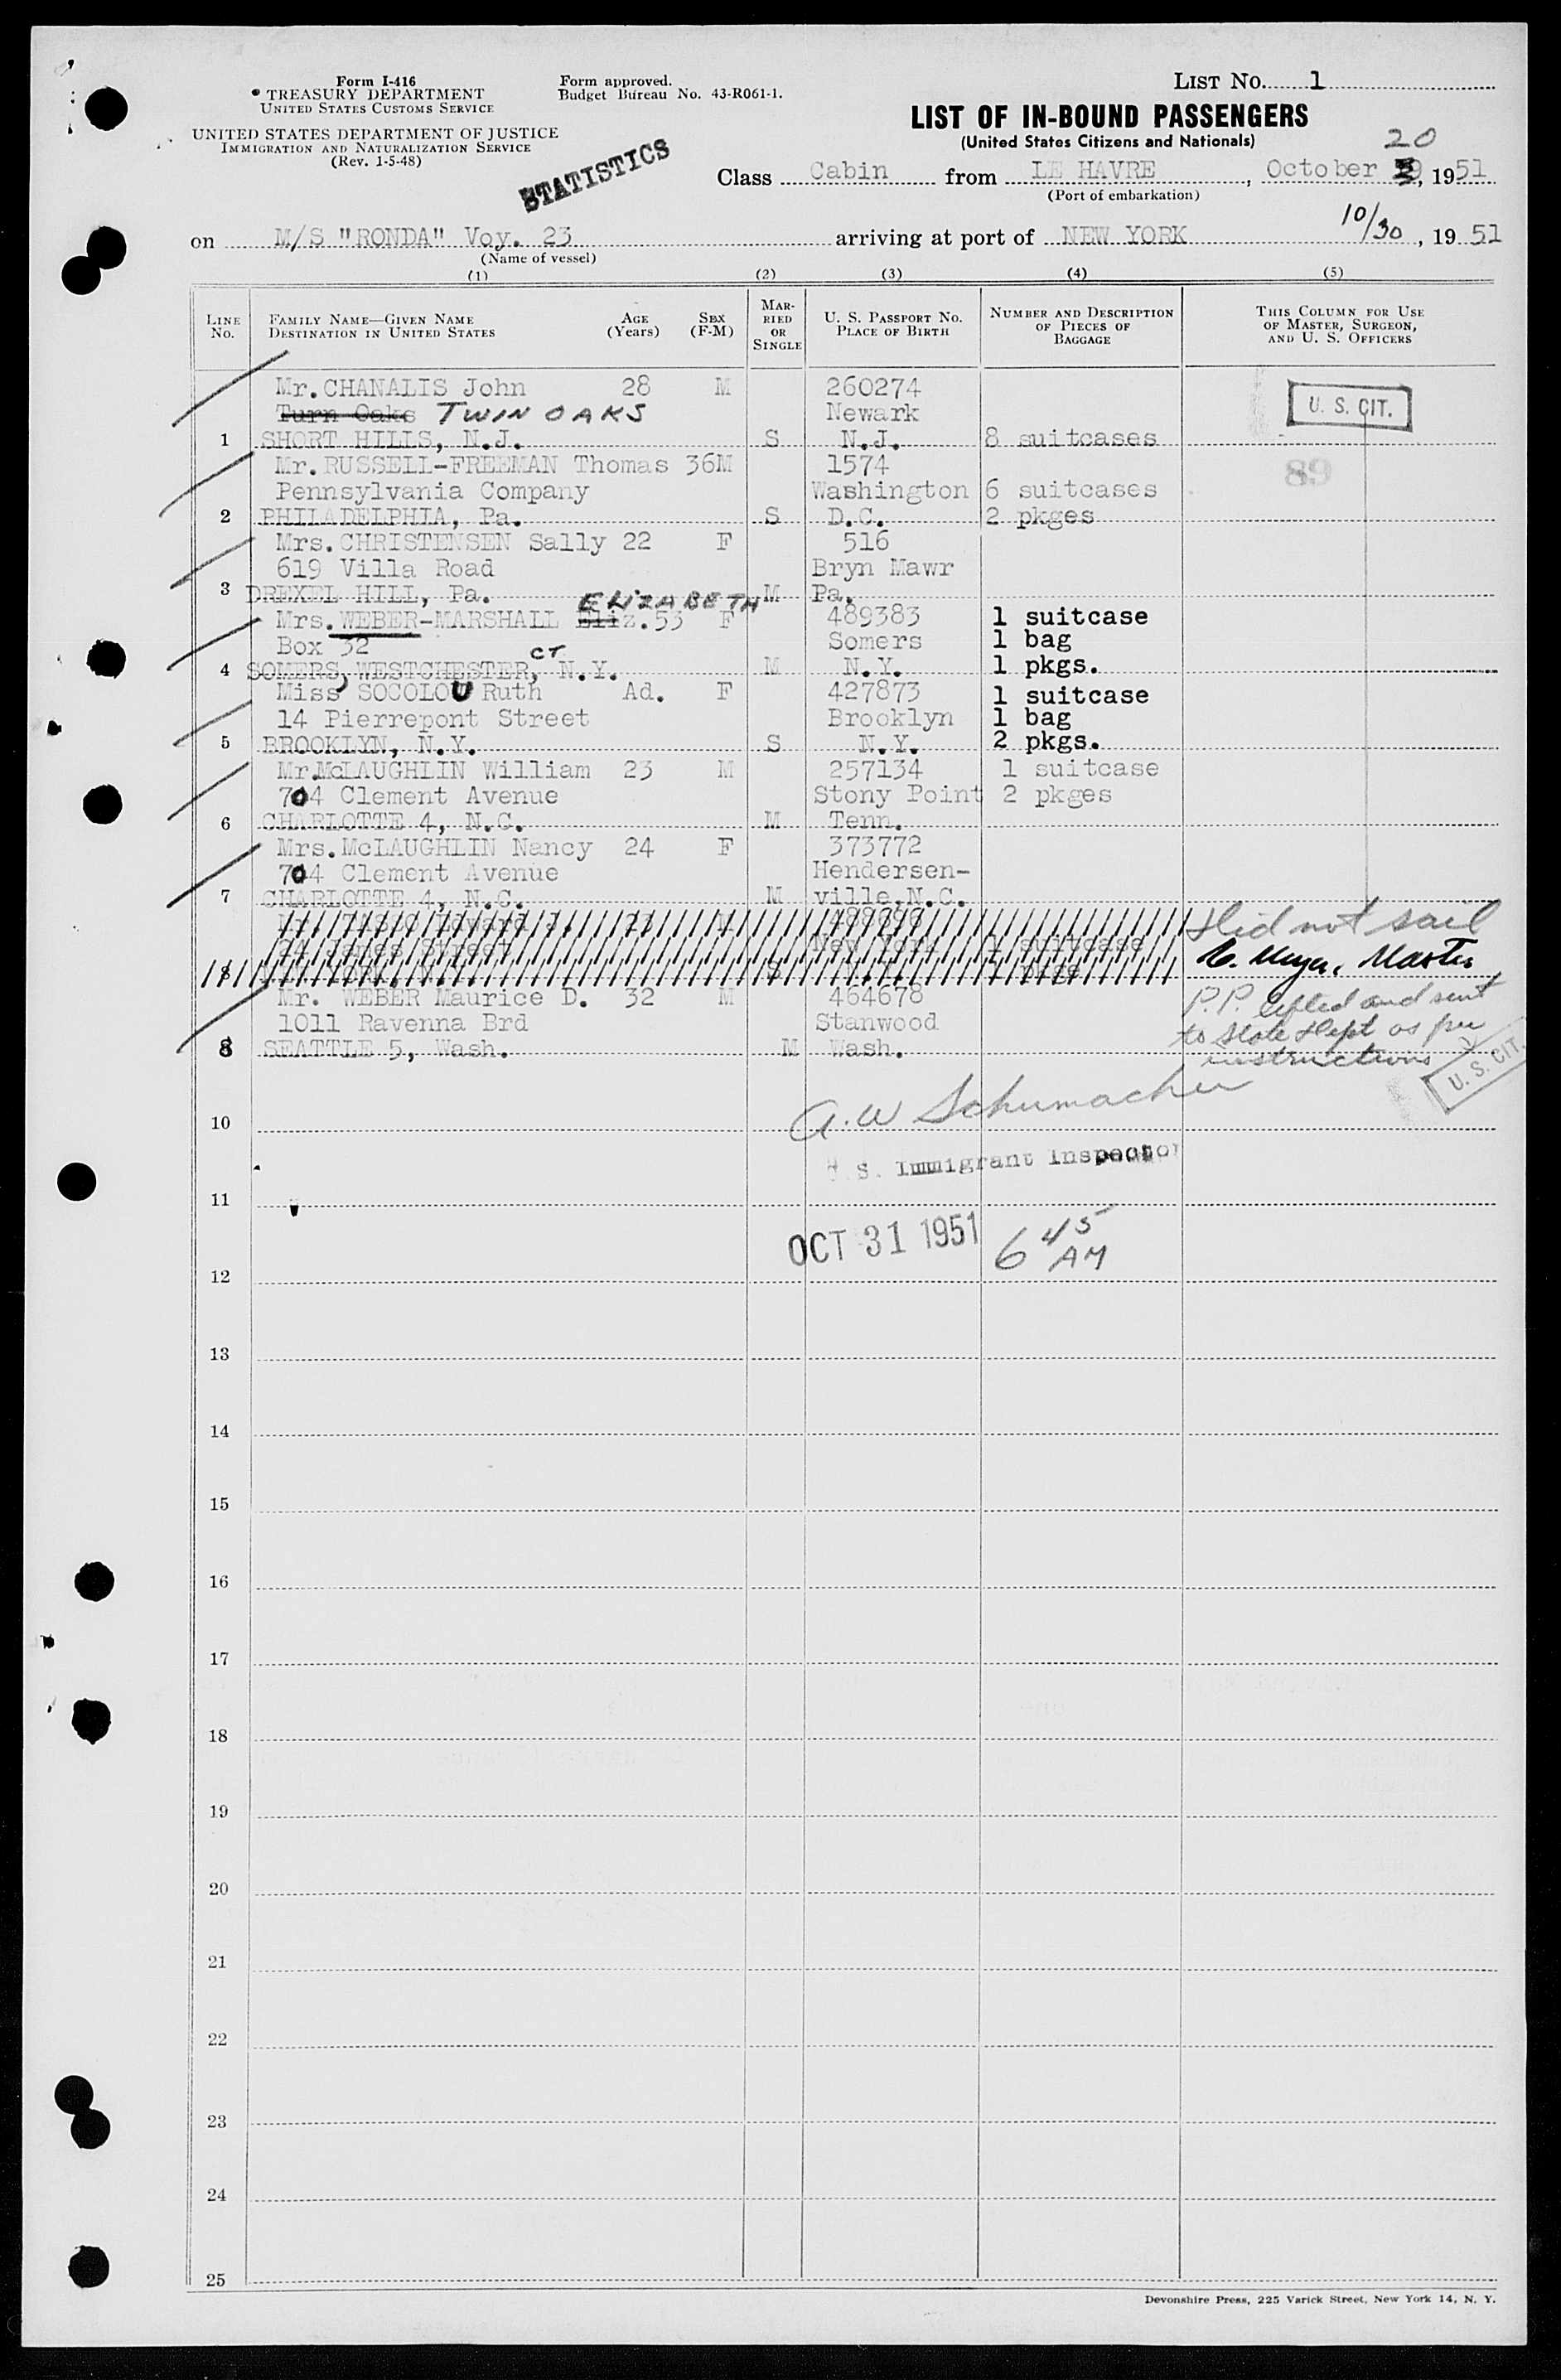 Form I-416
TREASURY DEPARTMENT
UNITED STATES CUSTOMS SERVICE
UNITED STATES DEPARTMENT OF JUSTICE
IMMIGRATION AND NATURALIZATION SERVICE
(Rev. 1-5-48)
Form approved.
Budget Bureau No. 43-R061-1.
STATISTICS
LIST No. 1
LIST OF IN-BOUND PASSENGERS
(United States Citizens and Nationals)
20
Class Cabin from LE HAVRE, October , 1951
(Port of embarkation)
on M/S "RONDA" Voy. 23 arriving at port of NEW YORK 10/30, 1951
(Name of vessel)
(1) (2) (3) (4) (5)
LINE No. FAMILY NAME—GIVEN NAME DESTINATION IN UNITED STATES AGE (Years) SEX (F-M) MARRIED OR SINGLE U. S. PASSPORT No. PLACE OF BIRTH NUMBER AND DESCRIPTION OF PIECES OF BAGGAGE THIS COLUMN FOR USE OF MASTER, SURGEON, AND U. S. OFFICERS
Mr. CHANALIS John 28 M 260274
Turn Oaks TWIN OAKS Newark U. S. CIT.
1 SHORT HILLS, N.J. S N.J. 8 suitcases
Mr. RUSSELL-FREEMAN Thomas 36M 1574 89
Pennsylvania Company Washington 6 suitcases
2 PHILADELPHIA, Pa. S D.C. 2 pkges
Mrs. CHRISTENSEN Sally 22 F 516
619 Villa Road Bryn Mawr
3 DREXEL HILL, Pa. M Pa.
ELIZABETH
Mrs. WEBER-MARSHALL Eliz. 53 F 489383 1 suitcase
Box 32 Somers 1 bag
CT
4 SOMERS, WESTCHESTER, N.Y. M N.Y. 1 pkgs.
Miss SOCOLOU Ruth Ad. F 427873 1 suitcase
14 Pierrepont Street Brooklyn 1 bag
5 BROOKLYN, N.Y. S N.Y. 2 pkgs.
Mr. McLAUGHLIN William 23 M 257134 1 suitcase
704 Clement Avenue Stony Point 2 pkges
6 CHARLOTTE 4, N.C. M Tenn.
Mrs. McLAUGHLIN Nancy 24 F 373772
704 Clement Avenue Hendersen-
7 CHARLOTTE 4, N.C. M ville, N.C.
Did not sail
James Street New York 1 suitcase
S Master
Mr. WEBER Maurice D. 32 M 464678 P.P. lifted and sent
1011 Ravenna Brd Stanwood to State Dept as per
8 SEATTLE 5, Wash. M Wash. instructions
U. S. CIT.
A. W Schumacher
10
S. Immigrant Inspector
11
OCT 31 1951 6 45 AM
12
13
14
15
16
17
18
19
20
21
22
23
24
25
Devonshire Press, 225 Varick Street, New York 14, N. Y.